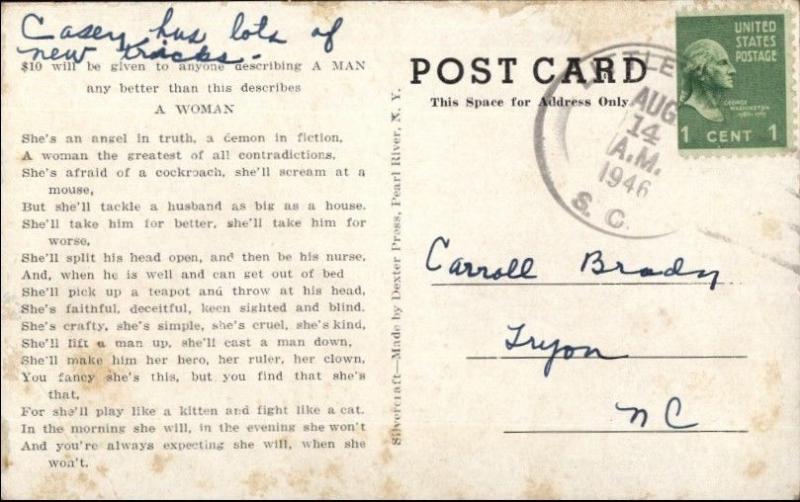 Casey has lots of
new tracks.
$10 will be given to anyone describing A MAN
any better than this describes
A WOMAN
She's an angel in truth, a demon in fiction,
A woman the greatest of all contradictions,
She's afraid of a cockroach, she'll scream at a
mouse,
But she'll tackle a husband as big as a house.
She'll take him for better, she'll take him for
worse,
She'll split his head open, and then be his nurse,
And, when he is well and can get out of bed
She'll pick up a teapot and throw at his head,
She's faithful, deceitful, keen sighted and blind.
She's crafty, she's simple, she's cruel, she's kind,
She'll lift a man up, she'll cast a man down,
She'll make him her hero, her ruler, her clown,
You fancy she's this, but you find that she's
that,
For she'll play like a kitten and fight like a cat.
In the morning she will, in the evening she won't
And you're always expecting she will, when she
won't.
Silvercraft—Made by Dexter Press, Pearl River, N. Y.
POST CARD
This Space for Address Only
AUG
14
A.M.
1946
S. C.
UNITED
STATES
POSTAGE
GEORGE
WASHINGTON
1 CENT 1
Carroll Brady
Tryon
NC